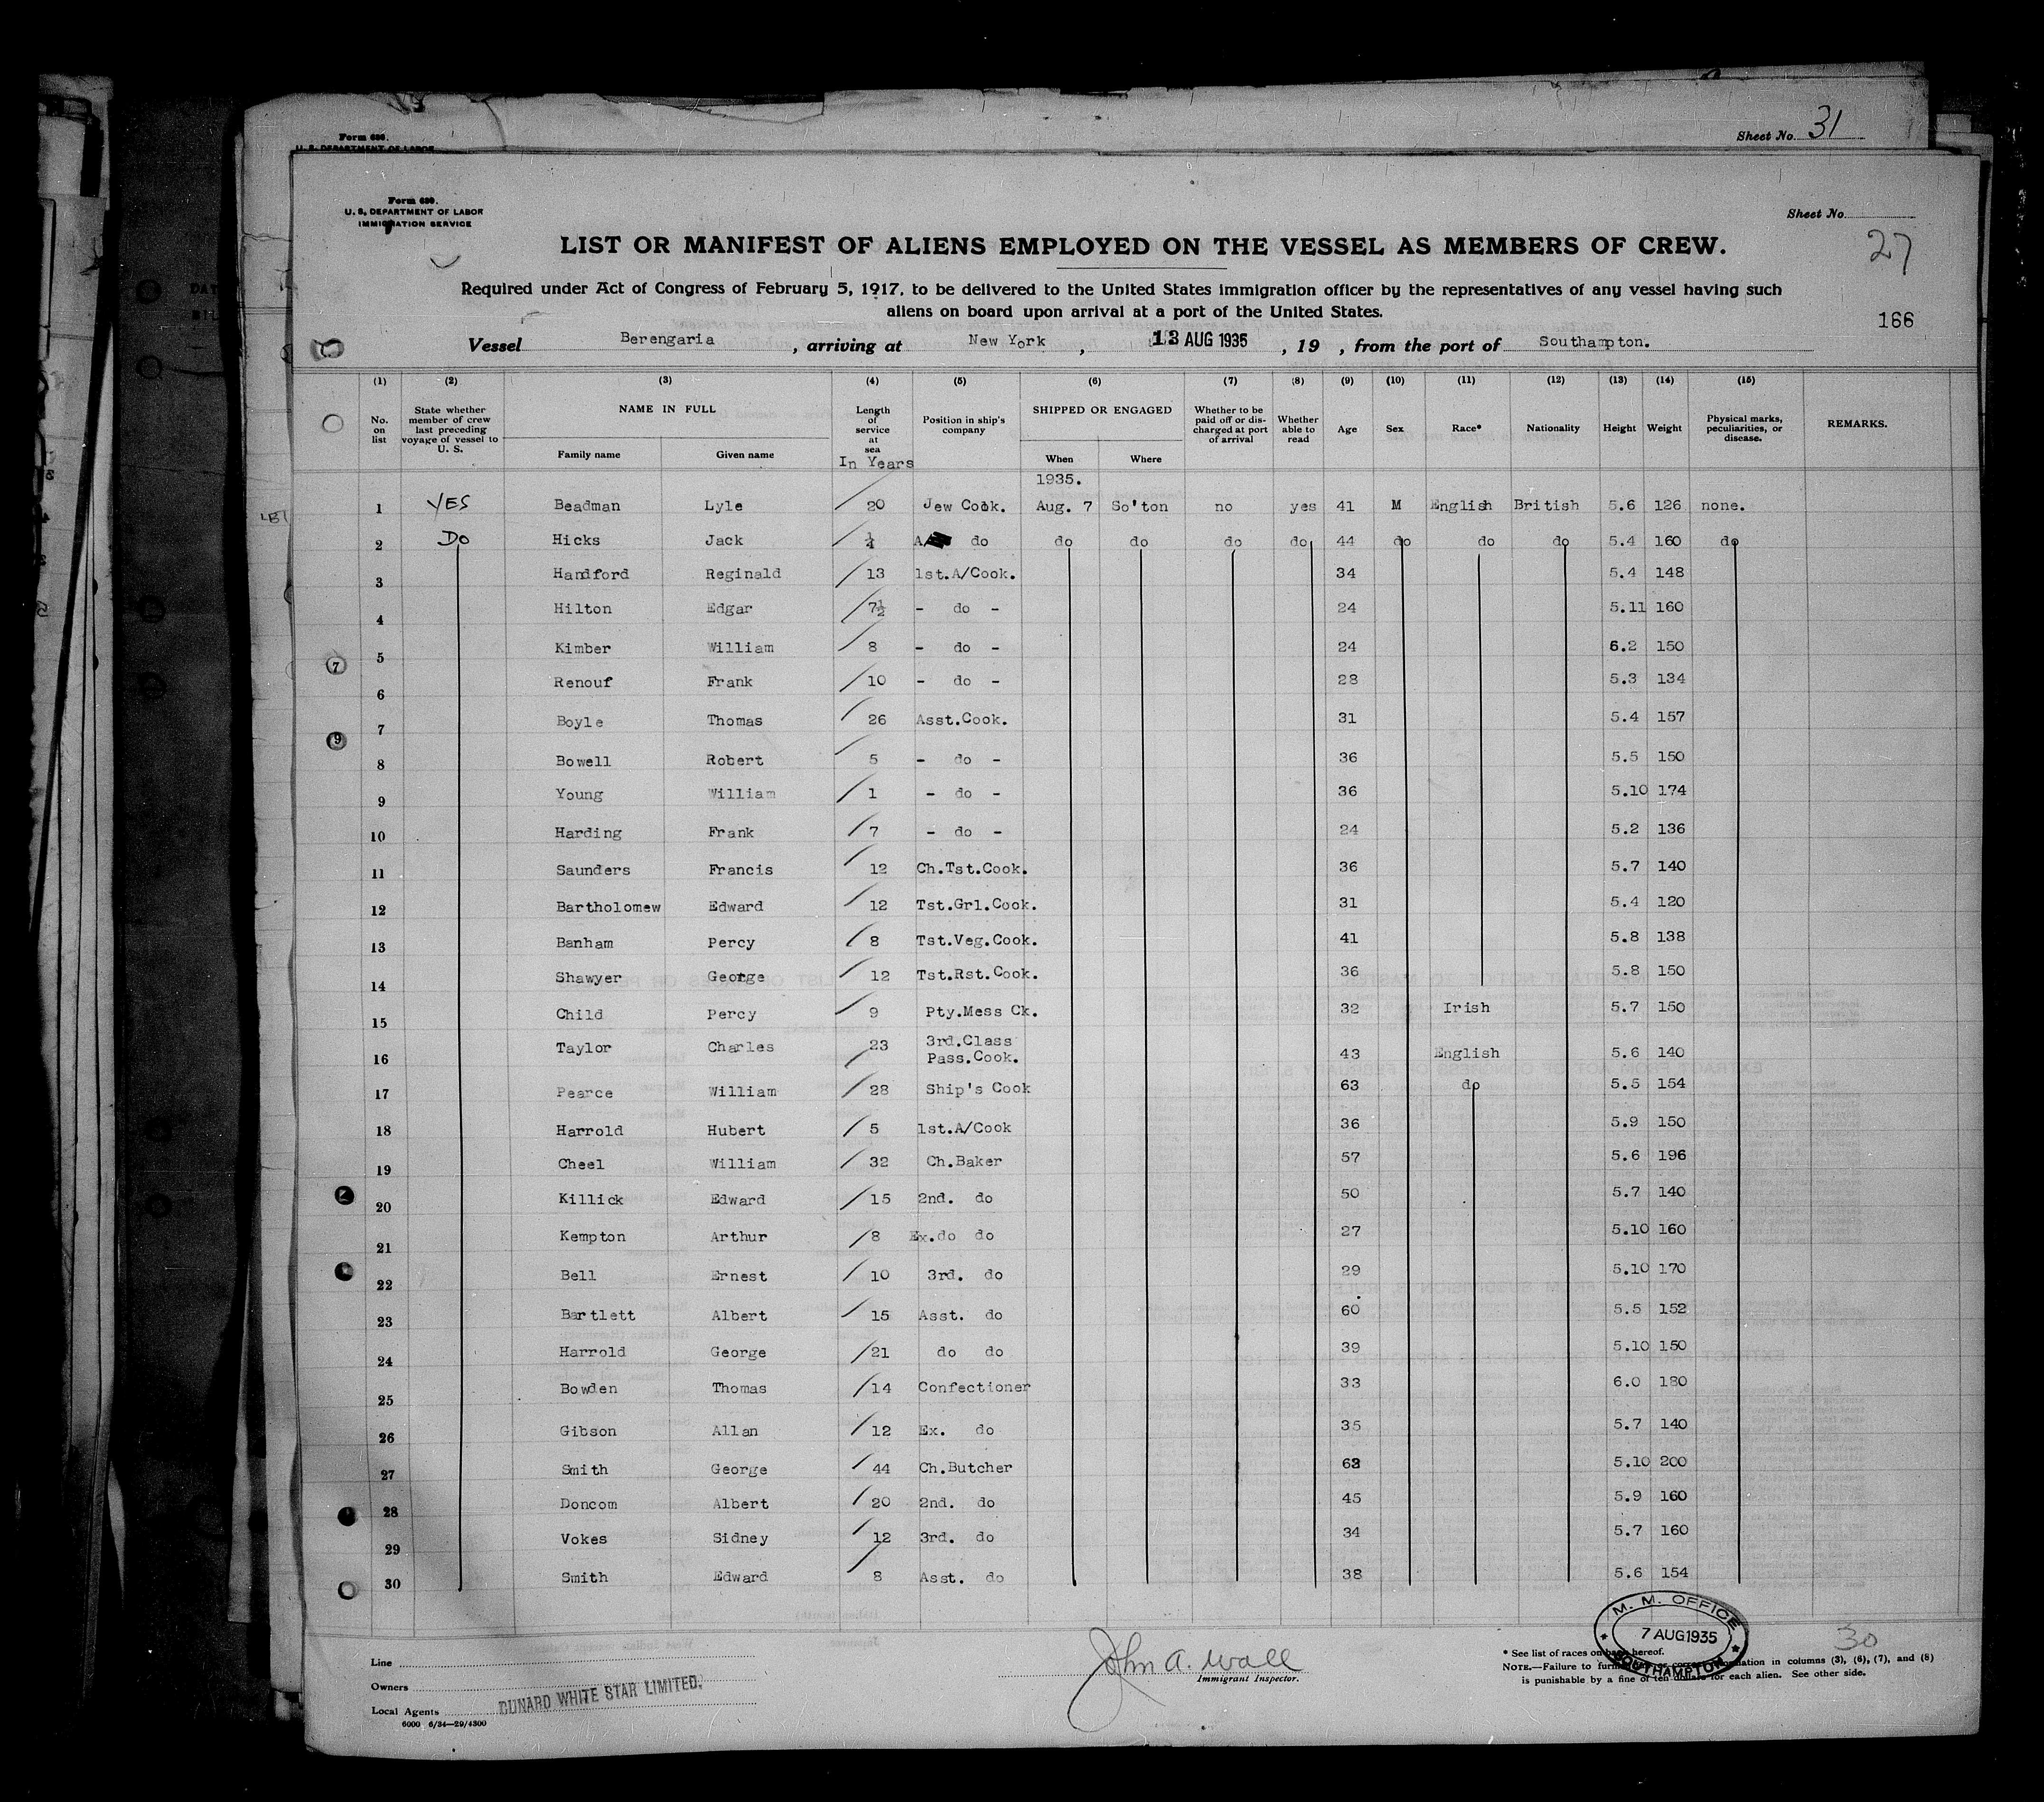 Form 680.
U. S. DEPARTMENT OF LABOR
Sheet No. 31
Form 680.
U. S. DEPARTMENT OF LABOR
IMMIGRATION SERVICE
Sheet No.
27
LIST OR MANIFEST OF ALIENS EMPLOYED ON THE VESSEL AS MEMBERS OF CREW.
Required under Act of Congress of February 5, 1917, to be delivered to the United States immigration officer by the representatives of any vessel having such
aliens on board upon arrival at a port of the United States.
166
Vessel Berengaria , arriving at New York , 13 AUG 1935 , 19 , from the port of Southampton.
(1) (2) (3) (4) (5) (6) (7) (8) (9) (10) (11) (12) (13) (14) (15)
No. on list State whether member of crew last preceding voyage of vessel to U. S. NAME IN FULL Family name Given name Length of service at sea In Years Position in ship's company SHIPPED OR ENGAGED When Where Whether to be paid off or discharged at port of arrival Whether able to read Age Sex Race* Nationality Height Weight Physical marks, peculiarities, or disease. REMARKS.
1935.
1 YES Beadman Lyle 20 Jew Cook. Aug. 7 So'ton no yes 41 M English British 5.6 126 none.
2 Do Hicks Jack ¼ A do do do do do 44 do do do 5.4 160 do
3 Handford Reginald 13 1st.A/Cook. 34 5.4 148
4 Hilton Edgar 7½ - do - 24 5.11 160
5 Kimber William 8 - do - 24 6.2 150
6 Renouf Frank 10 - do - 28 5.3 134
7 Boyle Thomas 26 Asst.Cook. 31 5.4 157
8 Bowell Robert 5 - do - 36 5.5 150
9 Young William 1 - do - 36 5.10 174
10 Harding Frank 7 - do - 24 5.2 136
11 Saunders Francis 12 Ch.Tst.Cook. 36 5.7 140
12 Bartholomew Edward 12 Tst.Grl.Cook. 31 5.4 120
13 Banham Percy 8 Tst.Veg.Cook. 41 5.8 138
14 Shawyer George 12 Tst.Rst.Cook. 36 5.8 150
15 Child Percy 9 Pty.Mess Ck. 32 Irish 5.7 150
16 Taylor Charles 23 3rd.Class Pass.Cook. 43 English 5.6 140
17 Pearce William 28 Ship's Cook 63 do 5.5 154
18 Harrold Hubert 5 1st.A/Cook 36 5.9 150
19 Cheel William 32 Ch.Baker 57 5.6 196
20 Killick Edward 15 2nd. do 50 5.7 140
21 Kempton Arthur 8 Ex.do do 27 5.10 160
22 Bell Ernest 10 3rd. do 29 5.10 170
23 Bartlett Albert 15 Asst. do 60 5.5 152
24 Harrold George 21 do do 39 5.10 150
25 Bowden Thomas 14 Confectioner 33 6.0 180
26 Gibson Allan 12 Ex. do 35 5.7 140
27 Smith George 44 Ch.Butcher 5.10 200
28 Doncom Albert 20 2nd. do 45 5.9 160
29 Vokes Sidney 12 3rd. do 34 5.7 160
30 Smith Edward 8 Asst. do 38 5.6 154
M. M. OFFICE
7 AUG 1935
SOUTHAMPTON
30
Line
Owners
Local Agents
CUNARD WHITE STAR LIMITED.
6000 6/34—29/4300
John A. Wall
Immigrant Inspector.
* See list of races on back hereof.
NOTE.—Failure to furnish or correct information in columns (3), (6), (7), and (8)
is punishable by a fine of ten dollars for each alien. See other side.